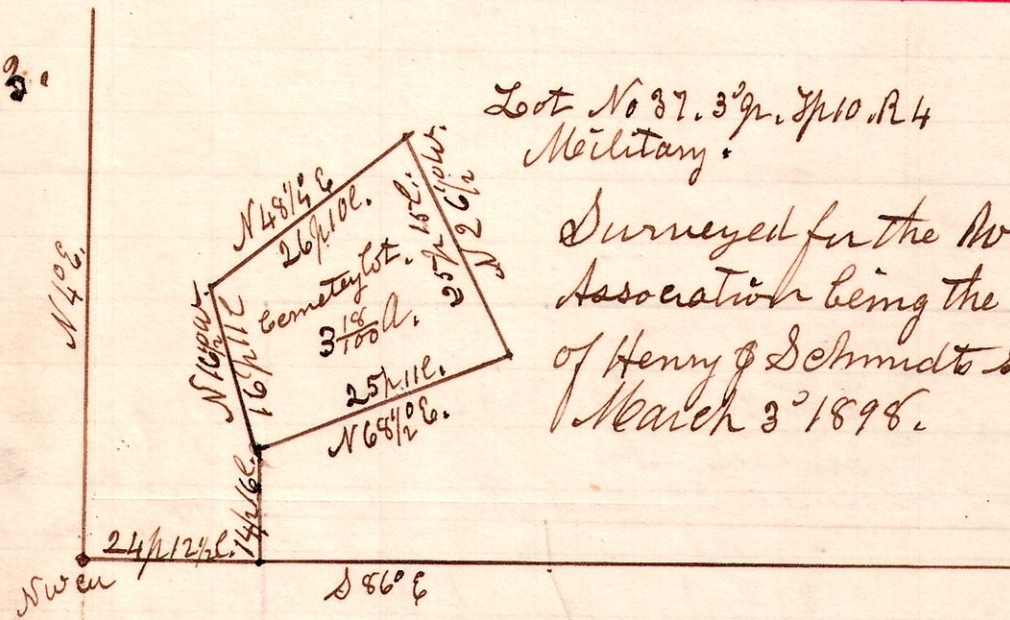 3.
Lot No 37. 3d qr. Tp 10. R 4
Military.
Surveyed for the
Association being the
of Henry J Schmidts
March 3d 1898.
N 48 1/4° E
26p 10l.
N 26 1/2° W.
25p 15l.
Cemetery Lot.
3 18/100 A.
N 16 1/2° W.
16p 21l
25p. 11l.
N 68 1/2° E.
N 4° E.
14p 16l.
24p 12 1/2l.
S 86° E